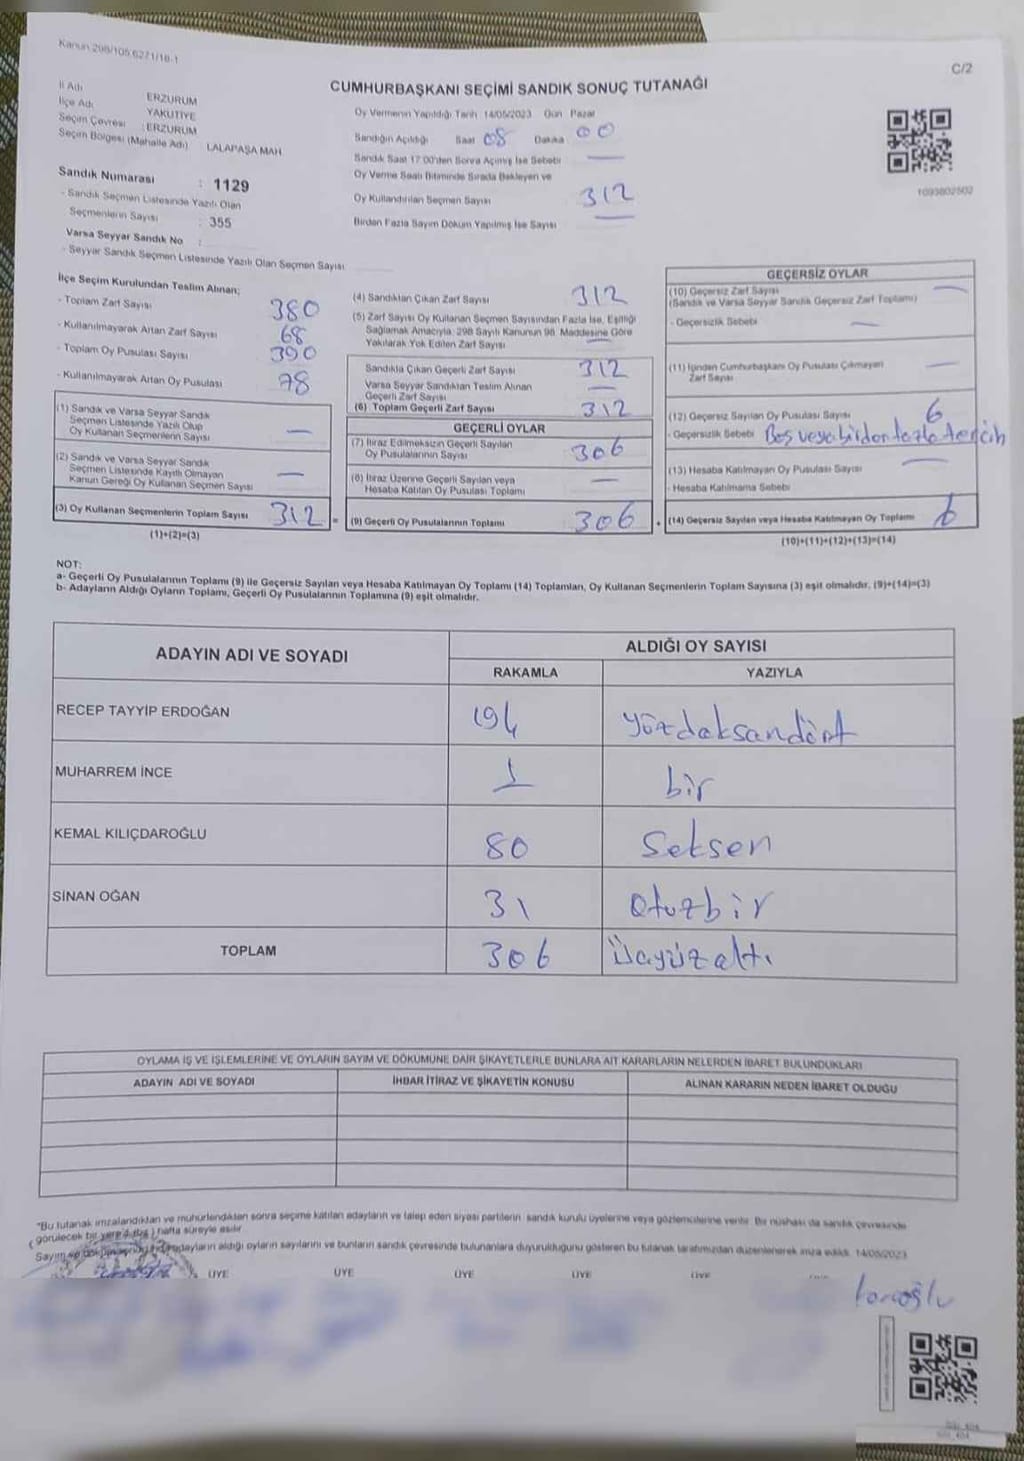 Kanun 298/105,6271/18-1
C/2
CUMHURBAŞKANI SEÇİMİ SANDIK SONUÇ TUTANAĞI
İl Adı : ERZURUM
İlçe Adı : YAKUTİYE
Seçim Çevresi : ERZURUM
Seçim Bölgesi (Mahalle Adı) LALAPAŞA MAH.
Sandık Numarası : 1129
- Sandık Seçmen Listesinde Yazılı Olan
Seçmenlerin Sayısı : 355
Varsa Seyyar Sandık No :
- Seyyar Sandık Seçmen Listesinde Yazılı Olan Seçmen Sayısı
Oy Vermenin Yapıldığı Tarih 14/05/2023 Gün Pazar
Sandığın Açıldığı Saat 08 Dakika 00
Sandık Saat 17:00'den Sonra Açılmış İse Sebebi —
Oy Verme Saati Bitiminde Sırada Bekleyen ve
Oy Kullandırılan Seçmen Sayısı 312
Birden Fazla Sayım Döküm Yapılmış İse Sayısı —
1093802502
İlçe Seçim Kurulundan Teslim Alınan;
- Toplam Zarf Sayısı 380
- Kullanılmayarak Artan Zarf Sayısı 68
- Toplam Oy Pusulası Sayısı 390
- Kullanılmayarak Artan Oy Pusulası 78
(1) Sandık ve Varsa Seyyar Sandık
Seçmen Listesinde Yazılı Olup
Oy Kullanan Seçmenlerin Sayısı —
(2) Sandık ve Varsa Seyyar Sandık
Seçmen Listesinde Kayıtlı Olmayan
Kanun Gereği Oy Kullanan Seçmen Sayısı —
(3) Oy Kullanan Seçmenlerin Toplam Sayısı 312 =
(1)+(2)=(3)
(4) Sandıktan Çıkan Zarf Sayısı 312
(5) Zarf Sayısı Oy Kullanan Seçmen Sayısından Fazla İse, Eşitliği
Sağlamak Amacıyla 298 Sayılı Kanunun 98. Maddesine Göre
Yakılarak Yok Edilen Zarf Sayısı —
Sandıkta Çıkan Geçerli Zarf Sayısı 312
Varsa Seyyar Sandıktan Teslim Alınan
Geçerli Zarf Sayısı —
(6) Toplam Geçerli Zarf Sayısı 312
GEÇERLİ OYLAR
(7) İtiraz Edilmeksizin Geçerli Sayılan
Oy Pusulalarının Sayısı 306
(8) İtiraz Üzerine Geçerli Sayılan veya
Hesaba Katılan Oy Pusulası Toplamı —
(9) Geçerli Oy Pusulalarının Toplamı 306 +
GEÇERSİZ OYLAR
(10) Geçersiz Zarf Sayısı —
(Sandık ve Varsa Seyyar Sandık Geçersiz Zarf Toplamı)
- Geçersizlik Sebebi —
(11) İçinden Cumhurbaşkanı Oy Pusulası Çıkmayan
Zarf Sayısı —
(12) Geçersiz Sayılan Oy Pusulası Sayısı 6
- Geçersizlik Sebebi Boş veya birden fazla tercih
(13) Hesaba Katılmayan Oy Pusulası Sayısı —
- Hesaba Katılmama Sebebi
(14) Geçersiz Sayılan veya Hesaba Katılmayan Oy Toplamı 6
(10)+(11)+(12)+(13)=(14)
NOT:
a- Geçerli Oy Pusulalarının Toplamı (9) ile Geçersiz Sayılan veya Hesaba Katılmayan Oy Toplamı (14) Toplamları, Oy Kullanan Seçmenlerin Toplam Sayısına (3) eşit olmalıdır. (9)+(14)=(3)
b- Adayların Aldığı Oyların Toplamı, Geçerli Oy Pusulalarının Toplamına (9) eşit olmalıdır.
ADAYIN ADI VE SOYADI ALDIĞI OY SAYISI
RAKAMLA YAZIYLA
RECEP TAYYİP ERDOĞAN 194 yüzdoksandört
MUHARREM İNCE 1 bir
KEMAL KILIÇDAROĞLU 80 Seksen
SİNAN OĞAN 31 otuzbir
TOPLAM 306 üçyüzaltı
OYLAMA İŞ VE İŞLEMLERİNE VE OYLARIN SAYIM VE DÖKÜMÜNE DAİR ŞİKAYETLERLE BUNLARA AİT KARARLARIN NELERDEN İBARET BULUNDUKLARI
ADAYIN ADI VE SOYADI İHBAR İTİRAZ VE ŞİKAYETİN KONUSU ALINAN KARARIN NEDEN İBARET OLDUĞU
"Bu tutanak imzalandıktan ve mühürlendikten sonra seçime katılan adayların ve talep eden siyasi partilerin sandık kurulu üyelerine veya gözlemcilerine verilir. Bir nüshası da sandık çevresinde
görülecek bir yere 1 (bir) hafta süreyle asılır.
Sayım ve adayların aldığı oyların sayılarını ve bunların sandık çevresinde bulunanlara duyurulduğunu gösteren bu tutanak tarafımızdan düzenlenerek imza edildi. 14/05/2023
ÜYE ÜYE ÜYE ÜYE ÜYE